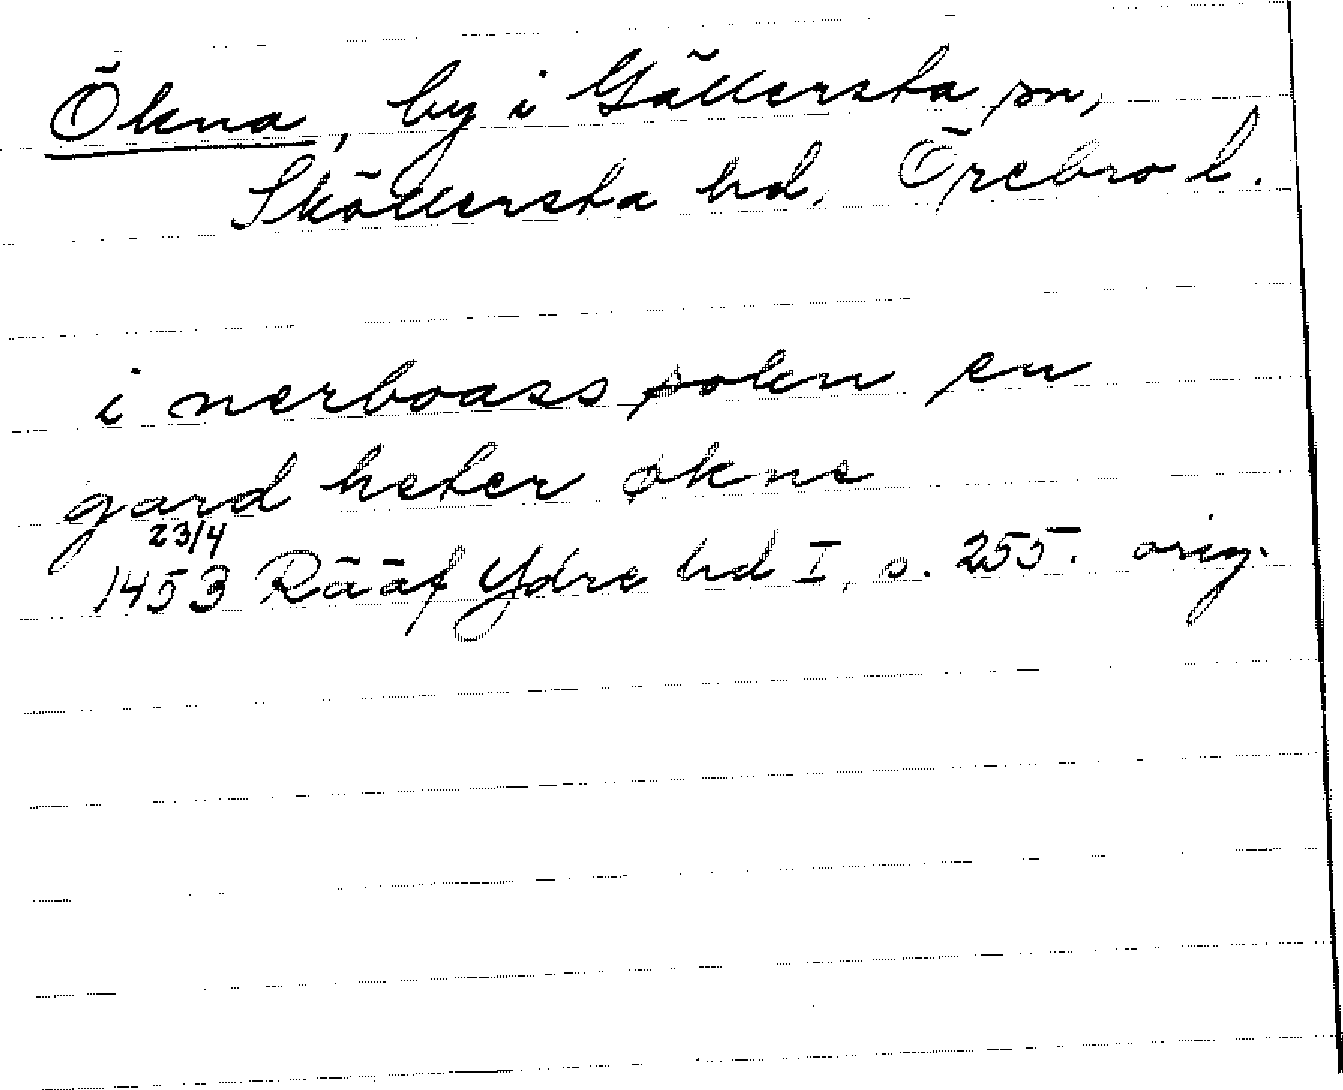 Ökna, by i Gällersta sn,
Sköllersta hd. Örebro l.
i nerboass sokn en
gard heter økne
23/4
1453 Rääf Ydre hd I, s. 255. orig.